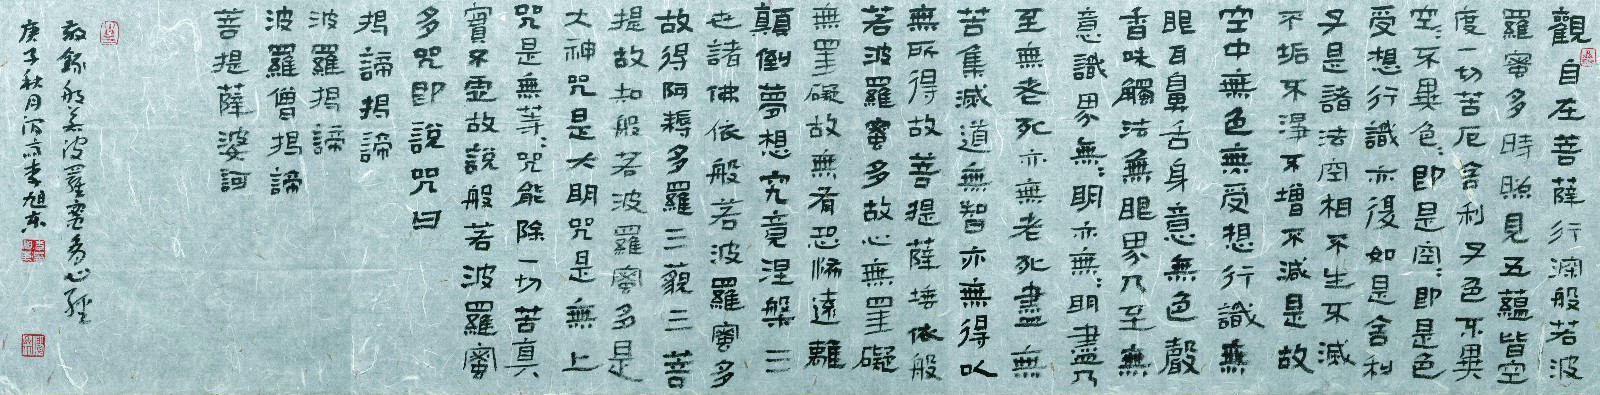 觀自在菩薩行深般若波
羅蜜多時照見五蘊皆空
度一切苦厄舍利子色不異
空〻不異色〻即是空〻即是色
受想行識亦復如是舍利
子是諸法空相不生不滅
不垢不淨不增不減是故
空中無色無受想行識無
眼耳鼻舌身意無色聲
香味觸法無眼界乃至無
意識界無〻明亦無〻明盡乃
至無老死亦無老死盡無
苦集滅道無智亦無得以
無所得故菩提薩埵依般
若波羅蜜多故心無罣礙
無罣礙故無有恐怖遠離
顛倒夢想究竟涅槃三
世諸佛依般若波羅蜜多
故得阿耨多羅三藐三菩
提故知般若波羅蜜多是
大神咒是大明咒是無上
咒是無等〻咒能除一切苦真
實不虛故說般若波羅蜜
多咒即說咒曰
揭諦揭諦
波羅揭諦
波羅僧揭諦
菩提薩婆訶
敬錄般若波羅蜜多心經
庚子秋月李旭東